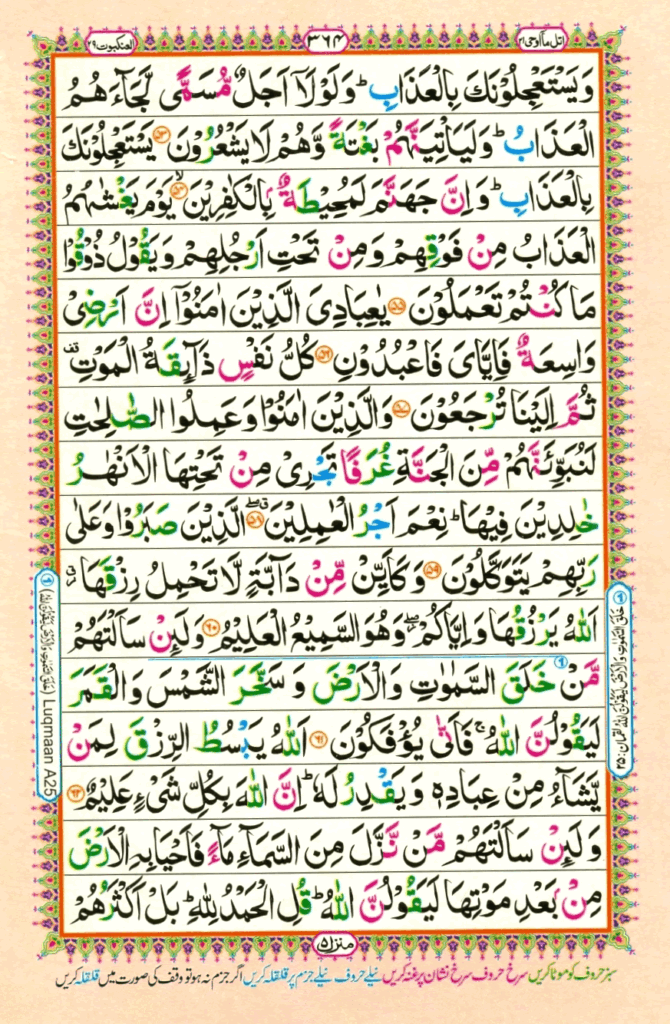 العنكبوت ٢٩
٣٦٤
اتل ما اوحی ٢١
وَيَسْتَعْجِلُوْنَكَ بِالْعَذَابِ ؕ وَلَوْلَاۤ اَجَلٌ مُّسَمًّى لَّجَآءَهُمُ
الْعَذَابُ ؕ وَلَيَاْتِيَنَّهُمْ بَغْتَةً وَّهُمْ لَا يَشْعُرُوْنَ ۝۵۳ يَسْتَعْجِلُوْنَكَ
بِالْعَذَابِ ؕ وَاِنَّ جَهَنَّمَ لَمُحِيْطَةٌۢ بِالْكٰفِرِيْنَ ۝۵۴ۙ يَوْمَ يَغْشٰىهُمُ
الْعَذَابُ مِنْ فَوْقِهِمْ وَمِنْ تَحْتِ اَرْجُلِهِمْ وَيَقُوْلُ ذُوْقُوْا
مَا كُنْتُمْ تَعْمَلُوْنَ ۝۵۵ يٰعِبَادِىَ الَّذِيْنَ اٰمَنُوْۤا اِنَّ اَرْضِىْ
وَاسِعَةٌ فَاِيَّاىَ فَاعْبُدُوْنِ ۝۵۶ كُلُّ نَفْسٍ ذَآىِٕقَةُ الْمَوْتِ قف
ثُمَّ اِلَيْنَا تُرْجَعُوْنَ ۝۵۷ وَالَّذِيْنَ اٰمَنُوْا وَعَمِلُوا الصّٰلِحٰتِ
لَنُبَوِّئَنَّهُمْ مِّنَ الْجَنَّةِ غُرَفًا تَجْرِىْ مِنْ تَحْتِهَا الْاَنْهٰرُ
خٰلِدِيْنَ فِيْهَا ؕ نِعْمَ اَجْرُ الْعٰمِلِيْنَ ۝۵۸ۖق الَّذِيْنَ صَبَرُوْا وَعَلٰى
رَبِّهِمْ يَتَوَكَّلُوْنَ ۝۵۹ وَكَاَيِّنْ مِّنْ دَآبَّةٍ لَّا تَحْمِلُ رِزْقَهَا ق
اَللّٰهُ يَرْزُقُهَا وَاِيَّاكُمْ ۖ وَهُوَ السَّمِيْعُ الْعَلِيْمُ ۝۶۰ وَلَىِٕنْ سَاَلْتَهُمْ
مَّنْ خَلَقَ السَّمٰوٰتِ وَالْاَرْضَ وَسَخَّرَ الشَّمْسَ وَالْقَمَرَ
لَيَقُوْلُنَّ اللّٰهُ ۚ فَاَنّٰى يُؤْفَكُوْنَ ۝۶۱ اَللّٰهُ يَبْسُطُ الرِّزْقَ لِمَنْ
يَّشَآءُ مِنْ عِبَادِهٖ وَيَقْدِرُ لَهٗ ؕ اِنَّ اللّٰهَ بِكُلِّ شَىْءٍ عَلِيْمٌ ۝۶۲
وَلَىِٕنْ سَاَلْتَهُمْ مَّنْ نَّزَّلَ مِنَ السَّمَآءِ مَآءً فَاَحْيَا بِهِ الْاَرْضَ
مِنْۢ بَعْدِ مَوْتِهَا لَيَقُوْلُنَّ اللّٰهُ ؕ قُلِ الْحَمْدُ لِلّٰهِ ؕ بَلْ اَكْثَرُهُمْ
منزل ٥
① خَلَقَ السَّمٰوٰتِ وَالْاَرْضَ لَيَقُوْلُنَّ اللّٰهُ لقمان: ٢٥
① (خَلَقَ السَّمٰوٰتِ وَالْاَرْضَ لَيَقُوْلُنَّ اللّٰهُ) Luqmaan A25
سبز حروف کو موٹا کریں سرخ حروف سرخ نشان پر غنہ کریں نیلے حروف نیلے جزم پر قلقلہ کریں اگر جزم نہ ہو تو وقف کی صورت میں قلقلہ کریں